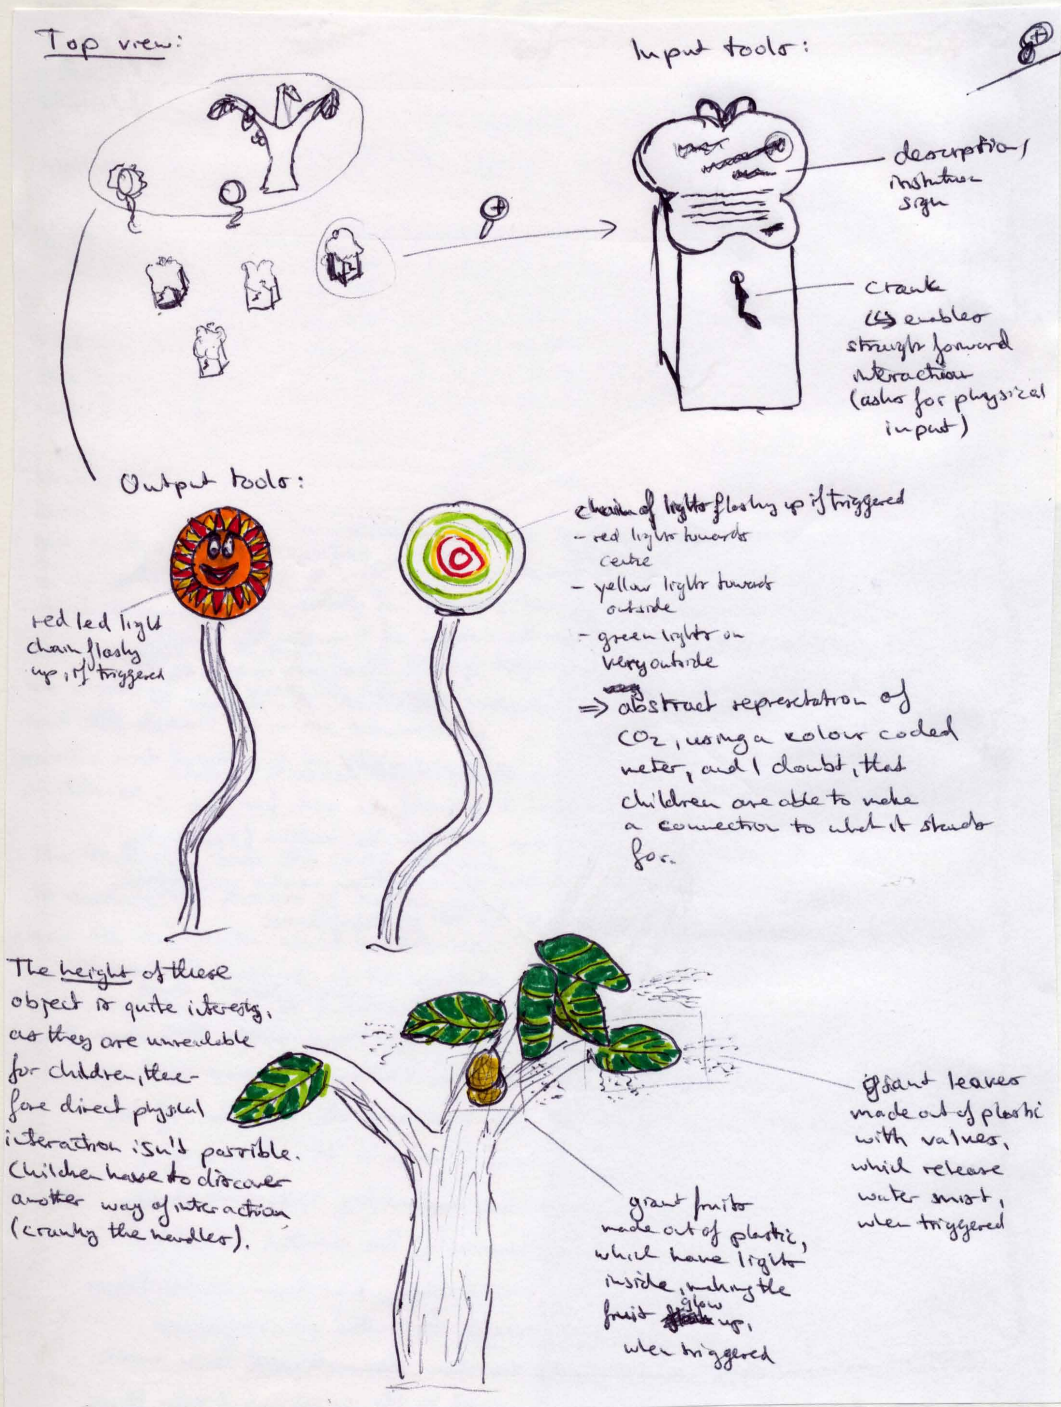 Top view:
Input tools:
description/
sign
crank
(↳) enables
straight forward
interaction
(asks for physical
input)
Output tools:
red led light
chain flashy
up, if triggered
chain of lights flashy up if triggered
- red lights towards
centre
- yellow light towards
outside
- green lights on
very outside
⇒ abstract represetation of
CO2, using a kolour coded
meter, and I doubt, that
children are able to make
a connection to what it stands
for.
The height of these
object is quite interesting,
as they are unreachable
for children, there-
fore direct physical
interaction isn't possible.
Children have to discover
another way of interaction
(cranky the handles).
giant leaves
made out of plastic
with valves,
which release
water mist,
when triggered
giant fruits
made out of plastic,
which have lights
inside, making the
fruit glow up,
when triggered